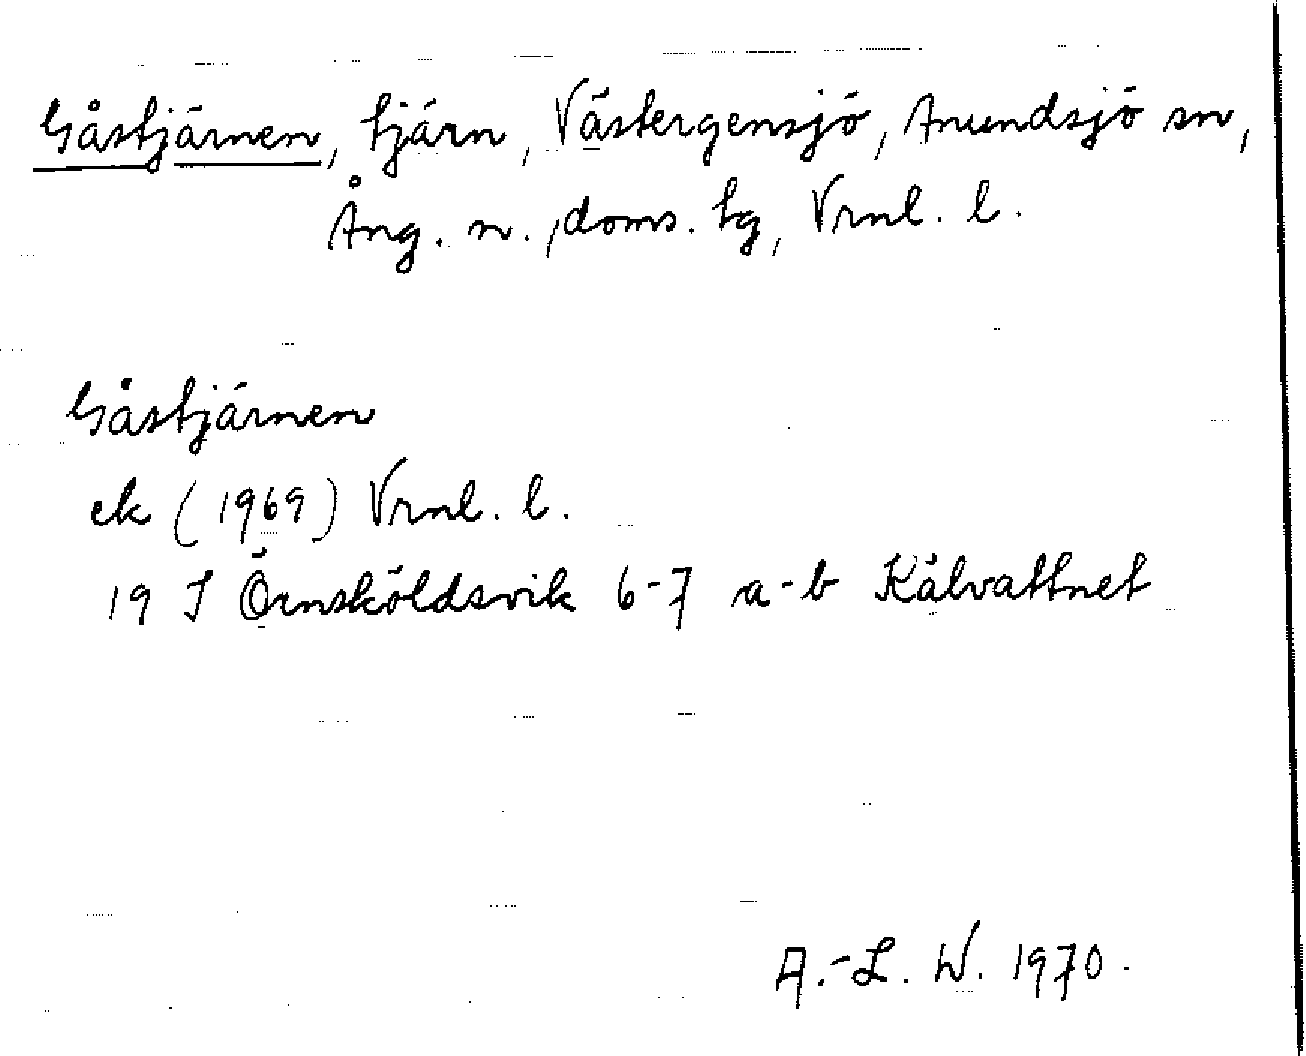 Gåstjärnen, tjärn, Västergensjö, Anundsjö sn,
Ång. n., doms. tg, Vrnl. l.
Gåstjärnen
ek (1969) Vrnl. l.
19 J Örnsköldsvik 6-7 a-b Kälvattnet
A.-L. W. 1970.